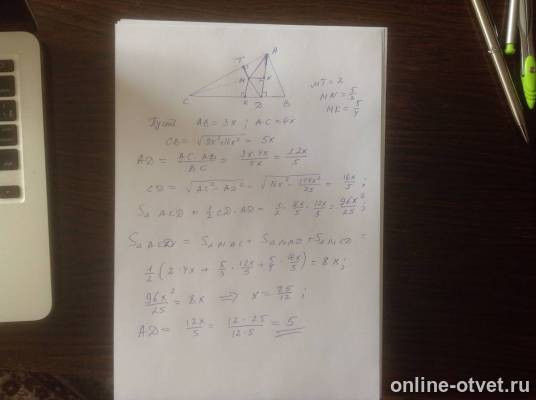 A
T
M
N
C
K
D
B
MT = 2
MN = 5/3
MK = 5/4
Пусть AB = 3x ; AC = 4x
CB = √(9x²+16x²) = 5x
AD = AC · AB / BC = 3x · 4x / 5x = 12x / 5
CD = √(AC² - AD²) = √(16x² - 144x²/25) = 16x/5 ;
S△ACD = 1/2 CD · AD = 1/2 · 16x/5 · 12x/5 = 96x²/25 ;
S△ACD = S△MAC + S△MAD + S△MCD =
1/2 (2 · 4x + 5/3 · 12x/5 + 5/4 · 16x/5) = 8x ;
96x²/25 = 8x ⟹ x = 25/12 ;
AD = 12x/5 = 12 · 25 / 12 · 5 = 5
online-otvet.ru